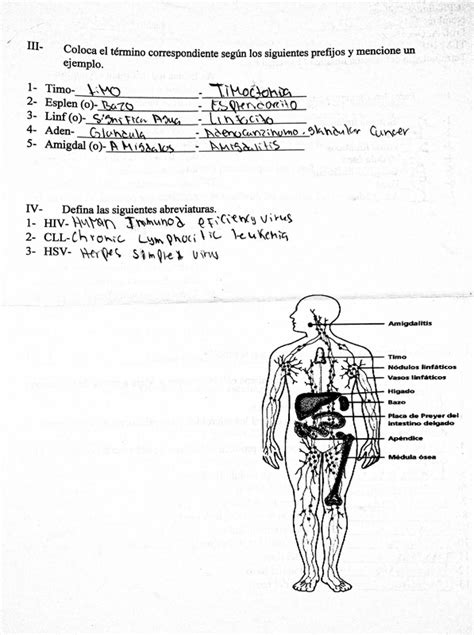 III- Coloca el término correspondiente según los siguientes prefijos y mencione un
ejemplo.
1- Timo- timo - Timoctonia
2- Esplen (o)- Bazo - Esplenocito
3- Linf (o)- Significa Agua - Linfocito
4- Aden- Glandula - Adenocarzinumo. glandular Cancer
5- Amigdal (o)- AMigdalas - AMigdalitis
IV- Defina las siguientes abreviaturas.
1- HIV- Human Immunod eficiency virus
2- CLL- Chronic Lymphocitic leukemia
3- HSV- Herpes simplex virus
Amigdalitis
Timo
Nódulos linfáticos
Vasos linfáticos
Higado
Bazo
Placa de Preyer del
intestino delgado
Apéndice
Médula ósea